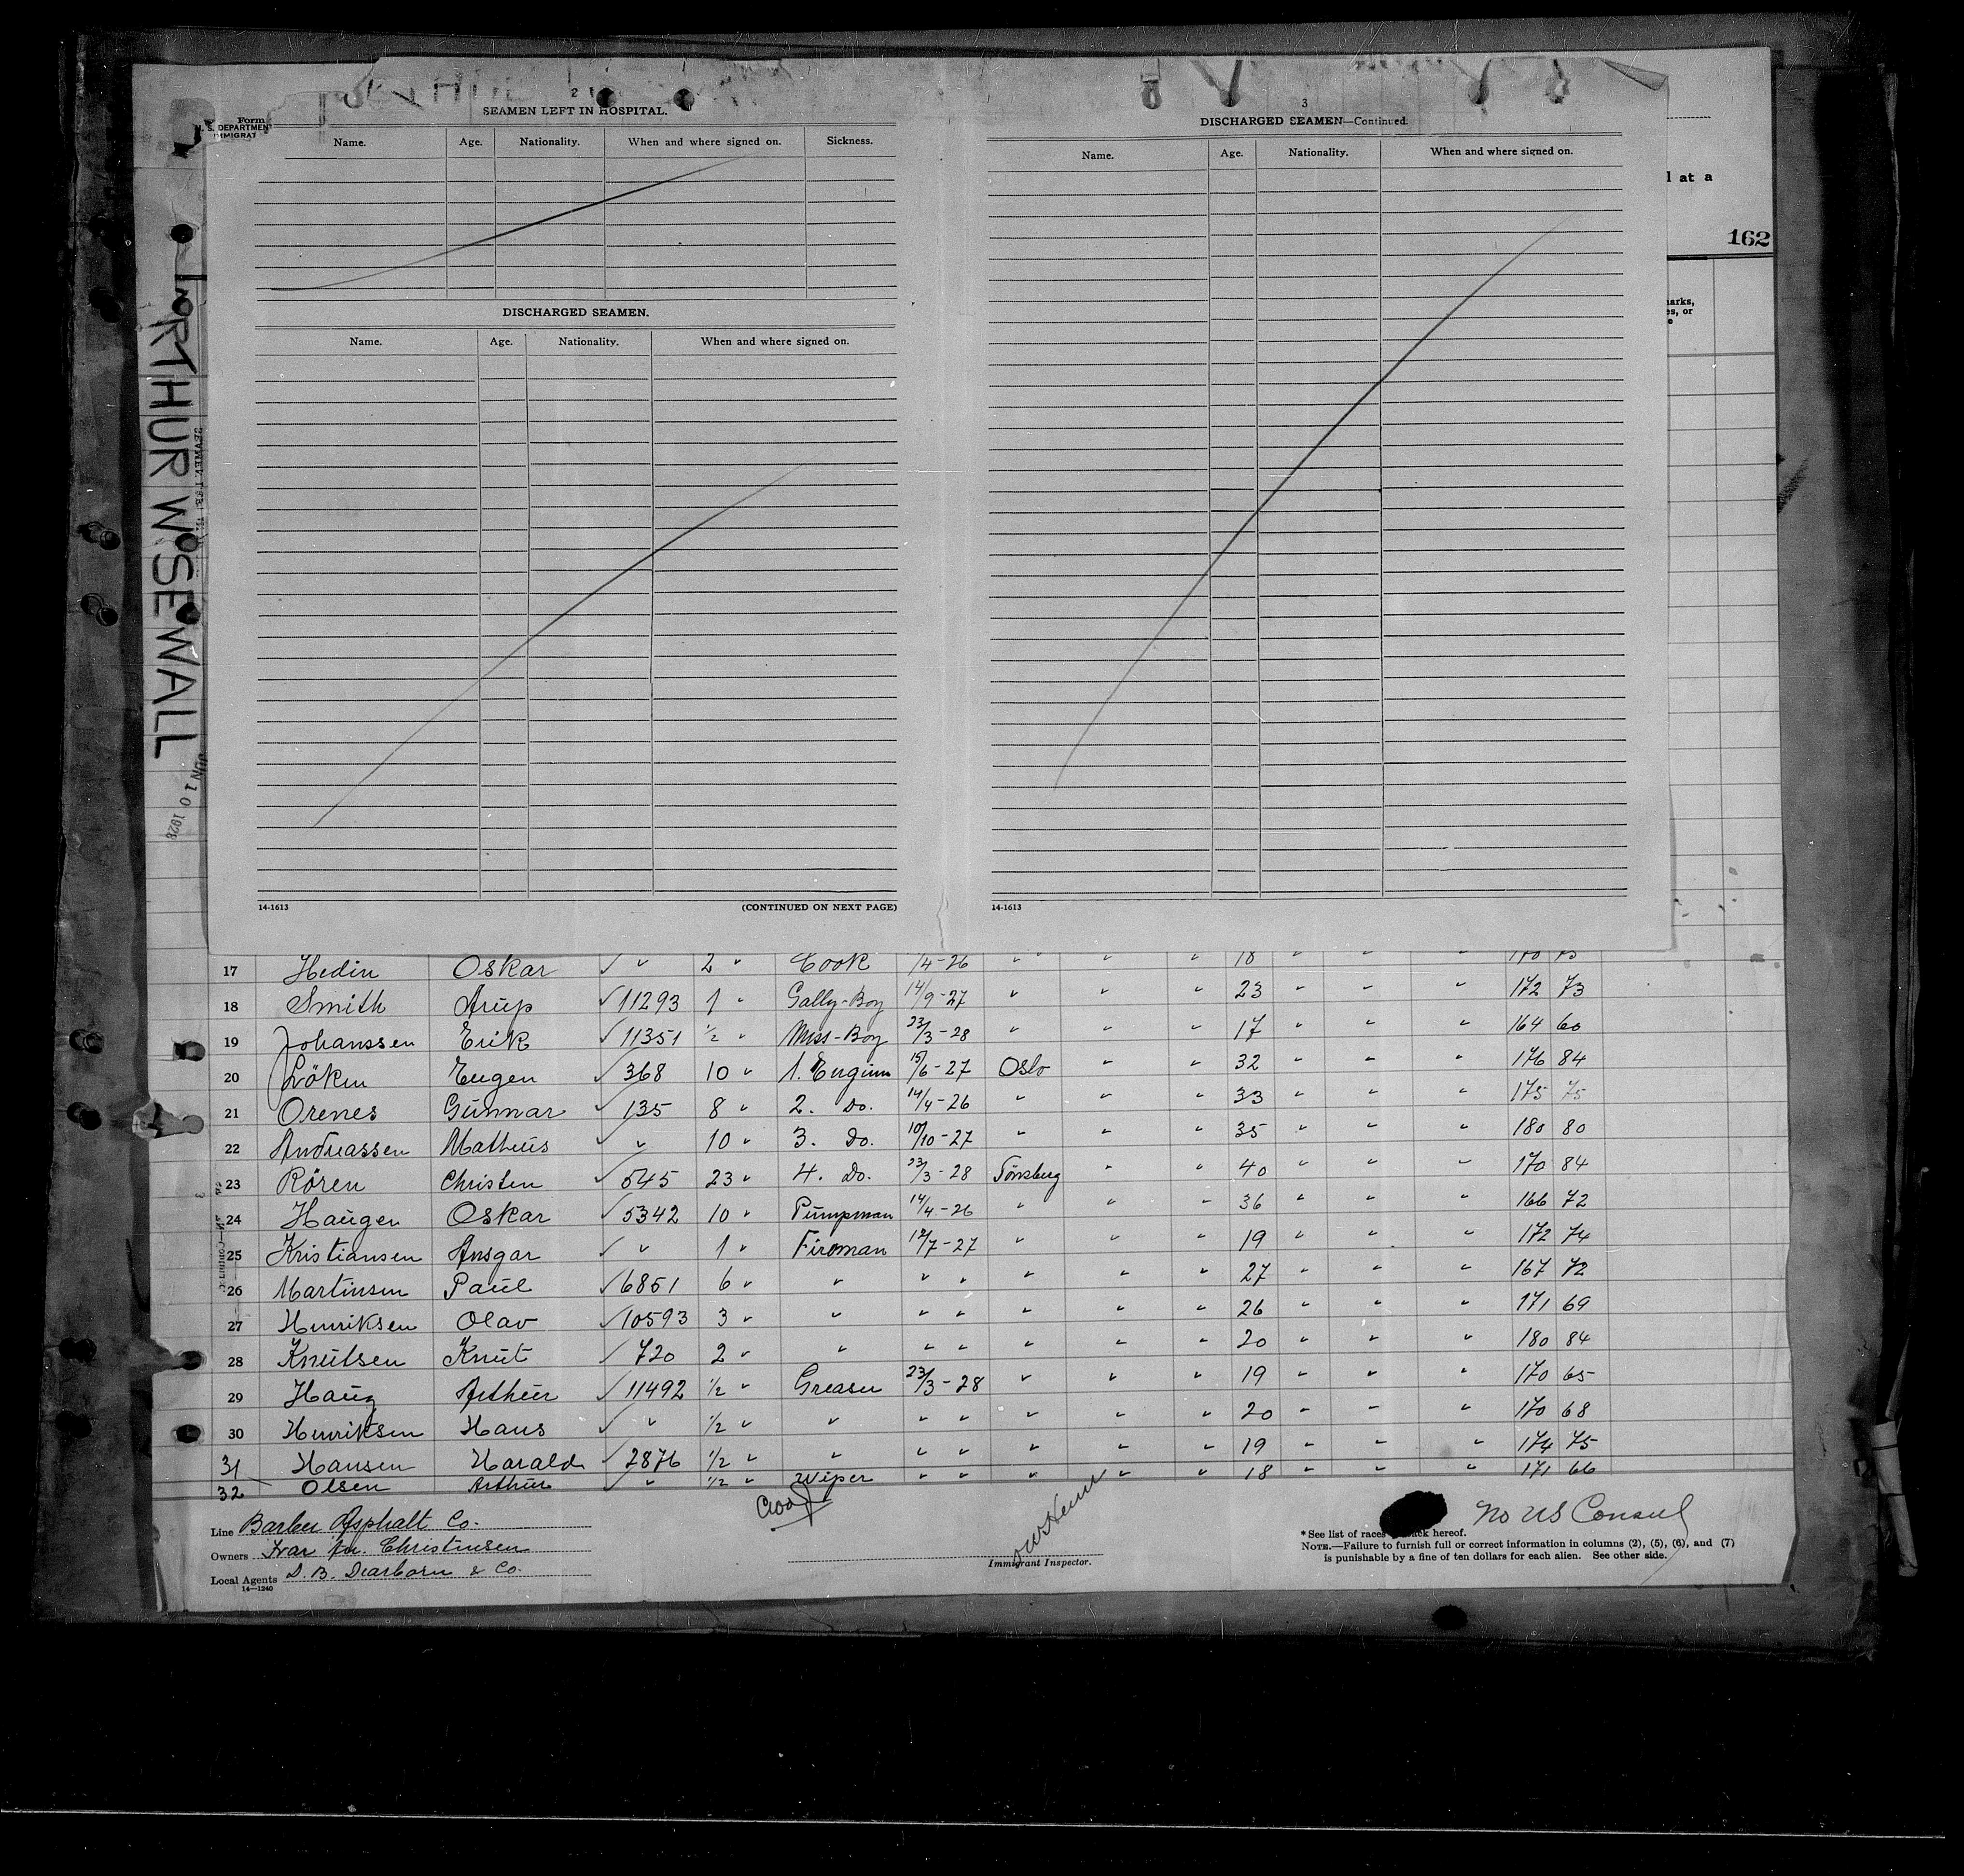 2
SEAMEN LEFT IN HOSPITAL.
Name. Age. Nationality. When and where signed on. Sickness.
DISCHARGED SEAMEN.
Name. Age. Nationality. When and where signed on.
14-1613 (CONTINUED ON NEXT PAGE)
3
DISCHARGED SEAMEN—Continued.
Name. Age. Nationality. When and where signed on.
14-1613
Form
U. S. DEPARTMENT
IMMIGRAT
l at a
162
arks,
es, or
e
ARTHUR W SEWALL
JUN 10 1928
17 Hedin Oskar ✓ " 2 " Cook /4-26 " " " 18 " " "
18 Smith Arup ✓ 11293 1 " Gally-Boy 14/9-27 " " " 23 " " " 172 73
19 Johanssen Erik ✓ 11351 1/2 " Mess-Boy 23/3-28 " " " 17 " " " 164 60
20 Löken Eugen ✓ 368 10 " 1. Enginn 15/6-27 Oslo " " 32 " " " 176 84
21 Orenes Gunnar ✓ 135 8 " 2. Do. 14/4-26 " " " 33 " " " 175 75
22 Andreassen Matheus ✓ " 10 " 3. Do. 10/10-27 " " " 35 " " " 180 80
23 Rören Christen ✓ 545 23 " 4. Do. 23/3-28 Tönsberg " " 40 " " " 170 84
24 Haugen Oskar ✓ 5342 10 " Pumpman 14/4-26 " " " 36 " " " 166 72
25 Kristiansen Ansgar ✓ " 1 " Fireman 12/7-27 " " " 19 " " " 172 74
26 Martinsen Paul ✓ 6851 6 " " " " " " " 27 " " " 167 72
27 Henriksen Olav ✓ 10593 3 " " " " " " " 26 " " " 171 69
28 Knutsen Knut ✓ 720 2 " " " " " " " 20 " " " 180 84
29 Haug Arthur ✓ 11492 1/2 " Greaser 23/3-28 " " " 19 " " " 170 65
30 Henriksen Hans ✓ " 1/2 " " " " " " " 20 " " " 170 68
31 Hansen Harald ✓ 2876 1/2 " " " " " " " 19 " " " 174 75
32 Olsen Arthur ✓ " 1/2 " Wiper " " " " " 18 " " " 171 66
Line Barber Asphalt Co.
Owners Ivar An. Christensen
Local Agents D. B. Dearborn & Co.
14-1240
Immigrant Inspector.
No US Consul
* See list of races back hereof.
NOTE.—Failure to furnish full or correct information in columns (2), (5), (6), and (7)
is punishable by a fine of ten dollars for each alien. See other side.